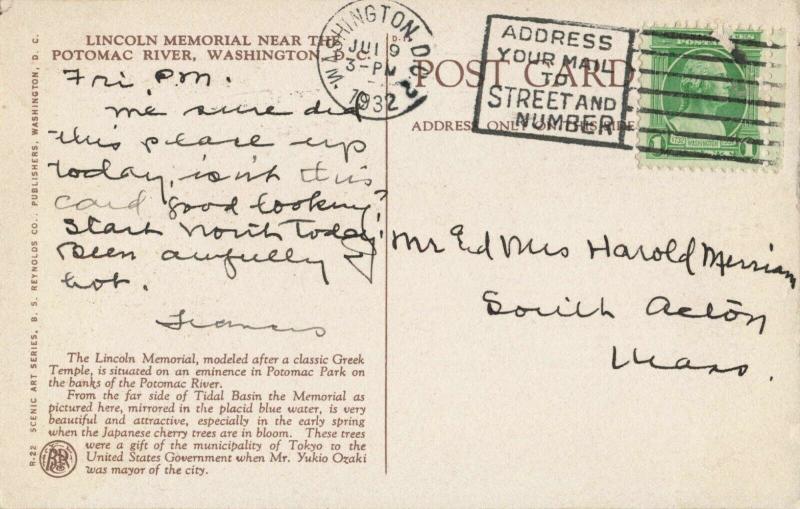 LINCOLN MEMORIAL NEAR THE
POTOMAC RIVER, WASHINGTON, D. C.
Fri. P.M.
We sure did
this place up
today, isn't this
card good looking?
Start North today.
Been awfully
hot.
Frances
The Lincoln Memorial, modeled after a classic Greek
Temple, is situated on an eminence in Potomac Park on
the banks of the Potomac River.
From the far side of Tidal Basin the Memorial as
pictured here, mirrored in the placid blue water, is very
beautiful and attractive, especially in the early spring
when the Japanese cherry trees are in bloom. These trees
were a gift of the municipality of Tokyo to the
United States Government when Mr. Yukio Ozaki
was mayor of the city.
R-22 SCENIC ART SERIES, B. S. REYNOLDS CO., PUBLISHERS, WASHINGTON, D. C.
WASHINGTON, D.C.
3-PM
1932
2
ADDRESS
YOUR MAIL
TO
STREET AND
NUMBER
POST CARD
ADDRESS ONLY ON THIS SIDE
1 WASHINGTON 1
Mr & Mrs Harold Merriam
South Acton
Mass.